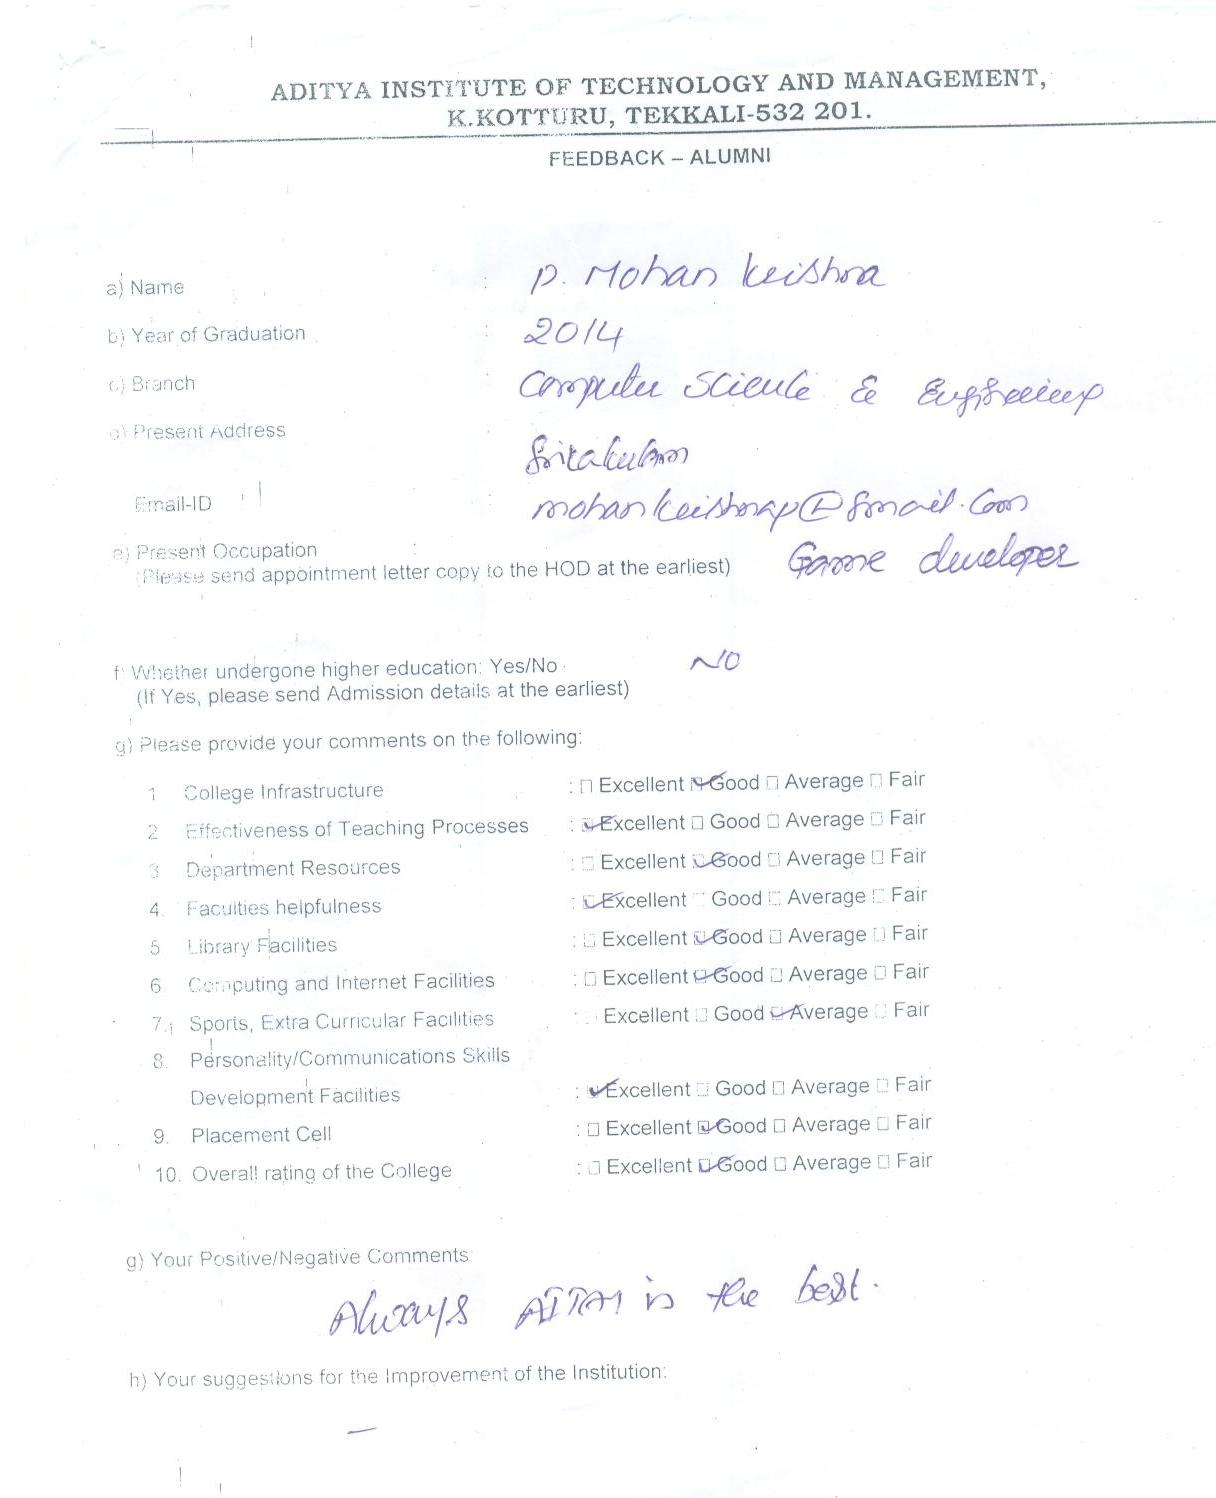 ADITYA INSTITUTE OF TECHNOLOGY AND MANAGEMENT,
K.KOTTURU, TEKKALI-532 201.
FEEDBACK – ALUMNI
a) Name : P. Mohan Krishna
b) Year of Graduation : 2014
c) Branch : Computer Science & Engineering
d) Present Address : Srikakulam
Email-ID : mohankrishnap@gmail.com
e) Present Occupation :
(Please send appointment letter copy to the HOD at the earliest) Game developer
f) Whether undergone higher education: Yes/No NO
(If Yes, please send Admission details at the earliest)
g) Please provide your comments on the following:
1 College Infrastructure : ☐ Excellent ☑ Good ☐ Average ☐ Fair
2 Effectiveness of Teaching Processes : ☑ Excellent ☐ Good ☐ Average ☐ Fair
3 Department Resources : ☐ Excellent ☑ Good ☐ Average ☐ Fair
4. Faculties helpfulness : ☑ Excellent ☐ Good ☐ Average ☐ Fair
5 Library Facilities : ☐ Excellent ☑ Good ☐ Average ☐ Fair
6. Computing and Internet Facilities : ☐ Excellent ☑ Good ☐ Average ☐ Fair
7. Sports, Extra Curricular Facilities : ☐ Excellent ☐ Good ☑ Average ☐ Fair
8. Personality/Communications Skills
Development Facilities : ☑ Excellent ☐ Good ☐ Average ☐ Fair
9. Placement Cell : ☐ Excellent ☑ Good ☐ Average ☐ Fair
10. Overall rating of the College : ☐ Excellent ☑ Good ☐ Average ☐ Fair
g) Your Positive/Negative Comments
Always AITAM is the best.
h) Your suggestions for the Improvement of the Institution:
—